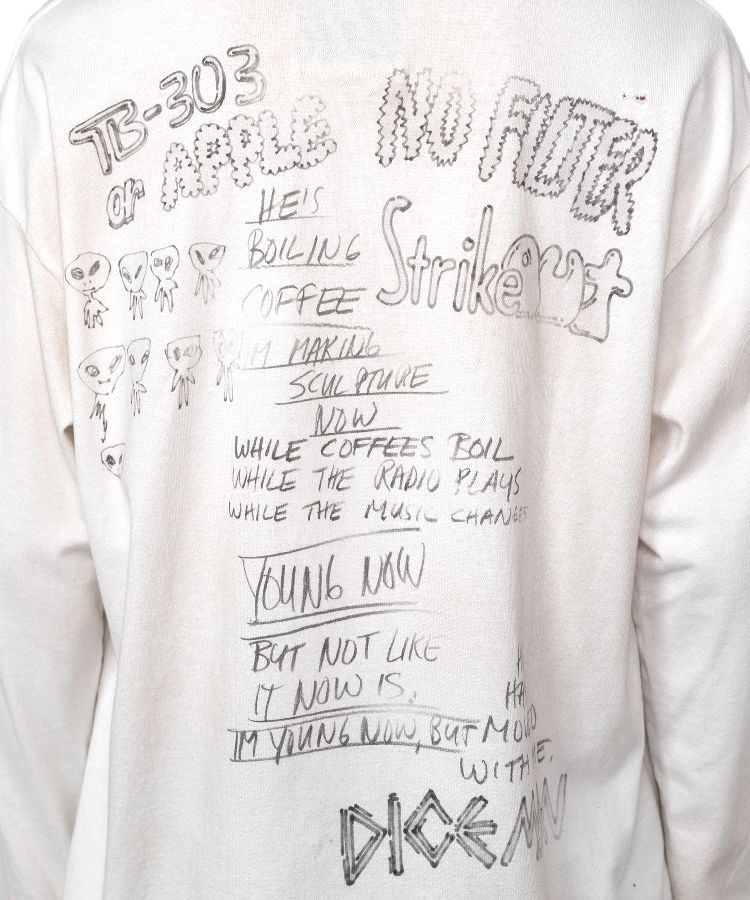 TB-303
or APPLE
NO FILTER
Strikeout
HE'S
BOILING
COFFEE
I'M MAKING
SCULPTURE
NOW
WHILE COFFEES BOIL
WHILE THE RADIO PLAYS
WHILE THE MUSIC CHANGES
YOUNG NOW
BUT NOT LIKE
IT NOW IS.
I'M YOUNG NOW, BUT
WITH ME.
DICE